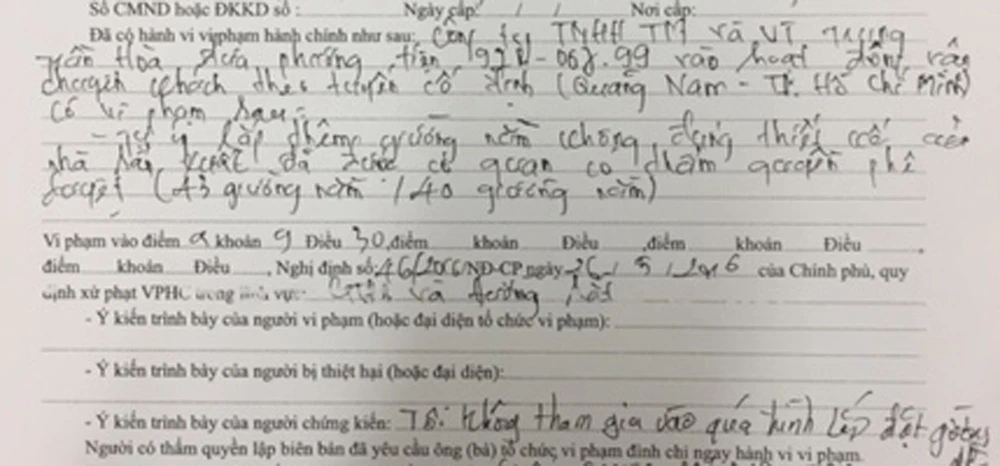 Số CMND hoặc ĐKKD số : Ngày cấp: / / Nơi cấp:
Đã có hành vi vi phạm hành chính như sau: Công ty TNHH TM và VT
Hòa đưa phương tiện 97B-067.99 vào hoạt động vận
chuyển khách theo tuyến cố định (Quảng Nam - TP. Hồ Chí Minh)
Có vi phạm sau:
- Tự ý lắp thêm giường nằm không đúng thiết kế của
nhà sản xuất đã được cơ quan có thẩm quyền phê
duyệt (43 giường nằm / 40 giường nằm)
Vi phạm vào điểm a khoản 9 Điều 30, điểm khoản Điều , điểm khoản Điều ,
điểm khoản Điều , Nghị định số: 46/2016/NĐ-CP ngày 26 / 5 / 2016 của Chính phủ, quy
định xử phạt VPHC trong lĩnh vực: và đường sắt
- Ý kiến trình bày của người vi phạm (hoặc đại diện tổ chức vi phạm):
- Ý kiến trình bày của người bị thiệt hại (hoặc đại diện):
- Ý kiến trình bày của người chứng kiến: Tôi không tham gia vào quá trình lắp đặt
Người có thẩm quyền lập biên bản đã yêu cầu ông (bà) tổ chức vi phạm đình chỉ ngay hành vi vi phạm.